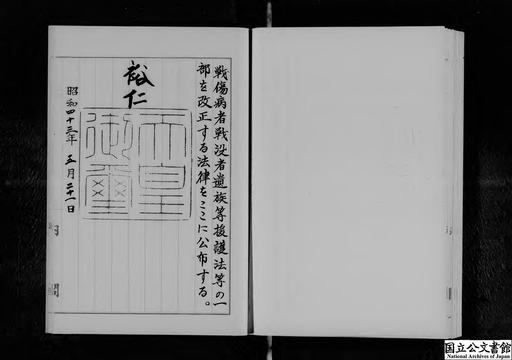 戦傷病者戦没者遺族等援護法等の一
部を改正する法律をここに公布する。
裕仁
天皇
御璽
昭和四十三年五月二十一日
国立公文書館
National Archives of Japan